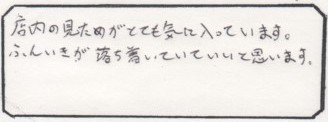 店内の見ためがとても気に入っています。
ふんいきが落ち着いていていいと思います。